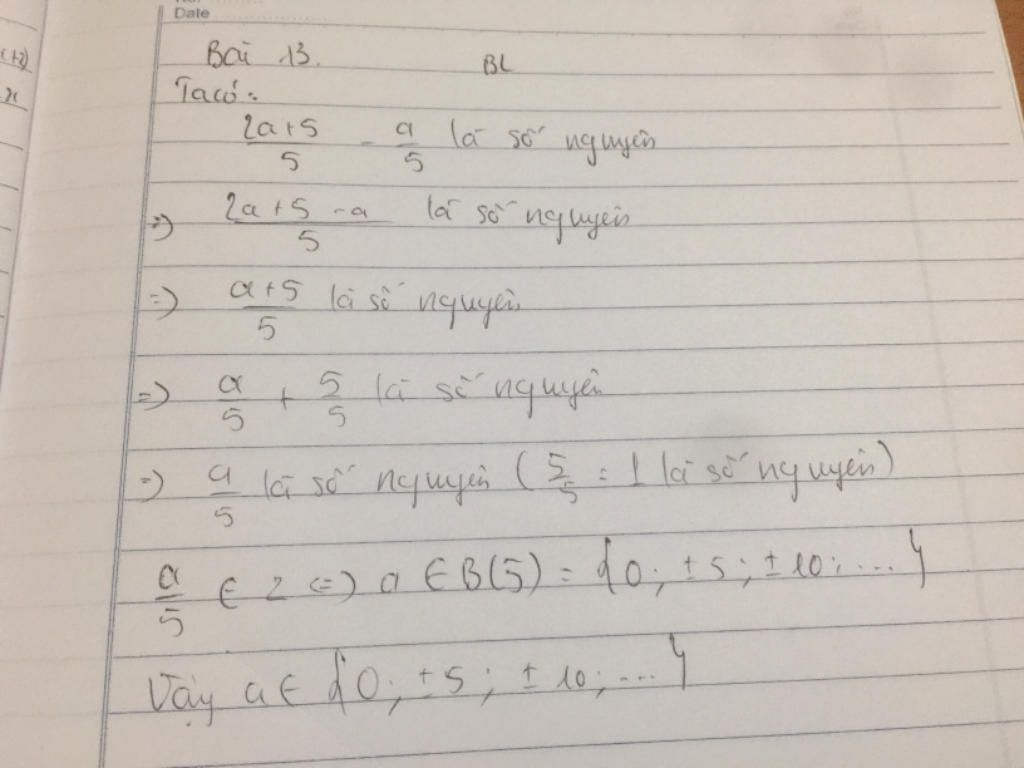 Date
(+2)
Bài 13. BL
x
Ta có:
\frac{2a+5}{5} - \frac{a}{5} là số nguyên
=) \frac{2a+5-a}{5} là số nguyên
=) \frac{a+5}{5} là số nguyên
=) \frac{a}{5} + \frac{5}{5} là số nguyên
=) \frac{a}{5} là số nguyên (\frac{5}{5} = 1 là số nguyên)
\frac{a}{5} ∈ Z (=) a ∈ B(5) = {0; ±5; ±10; ...}
Vậy a ∈ {0; ±5; ±10; ...}